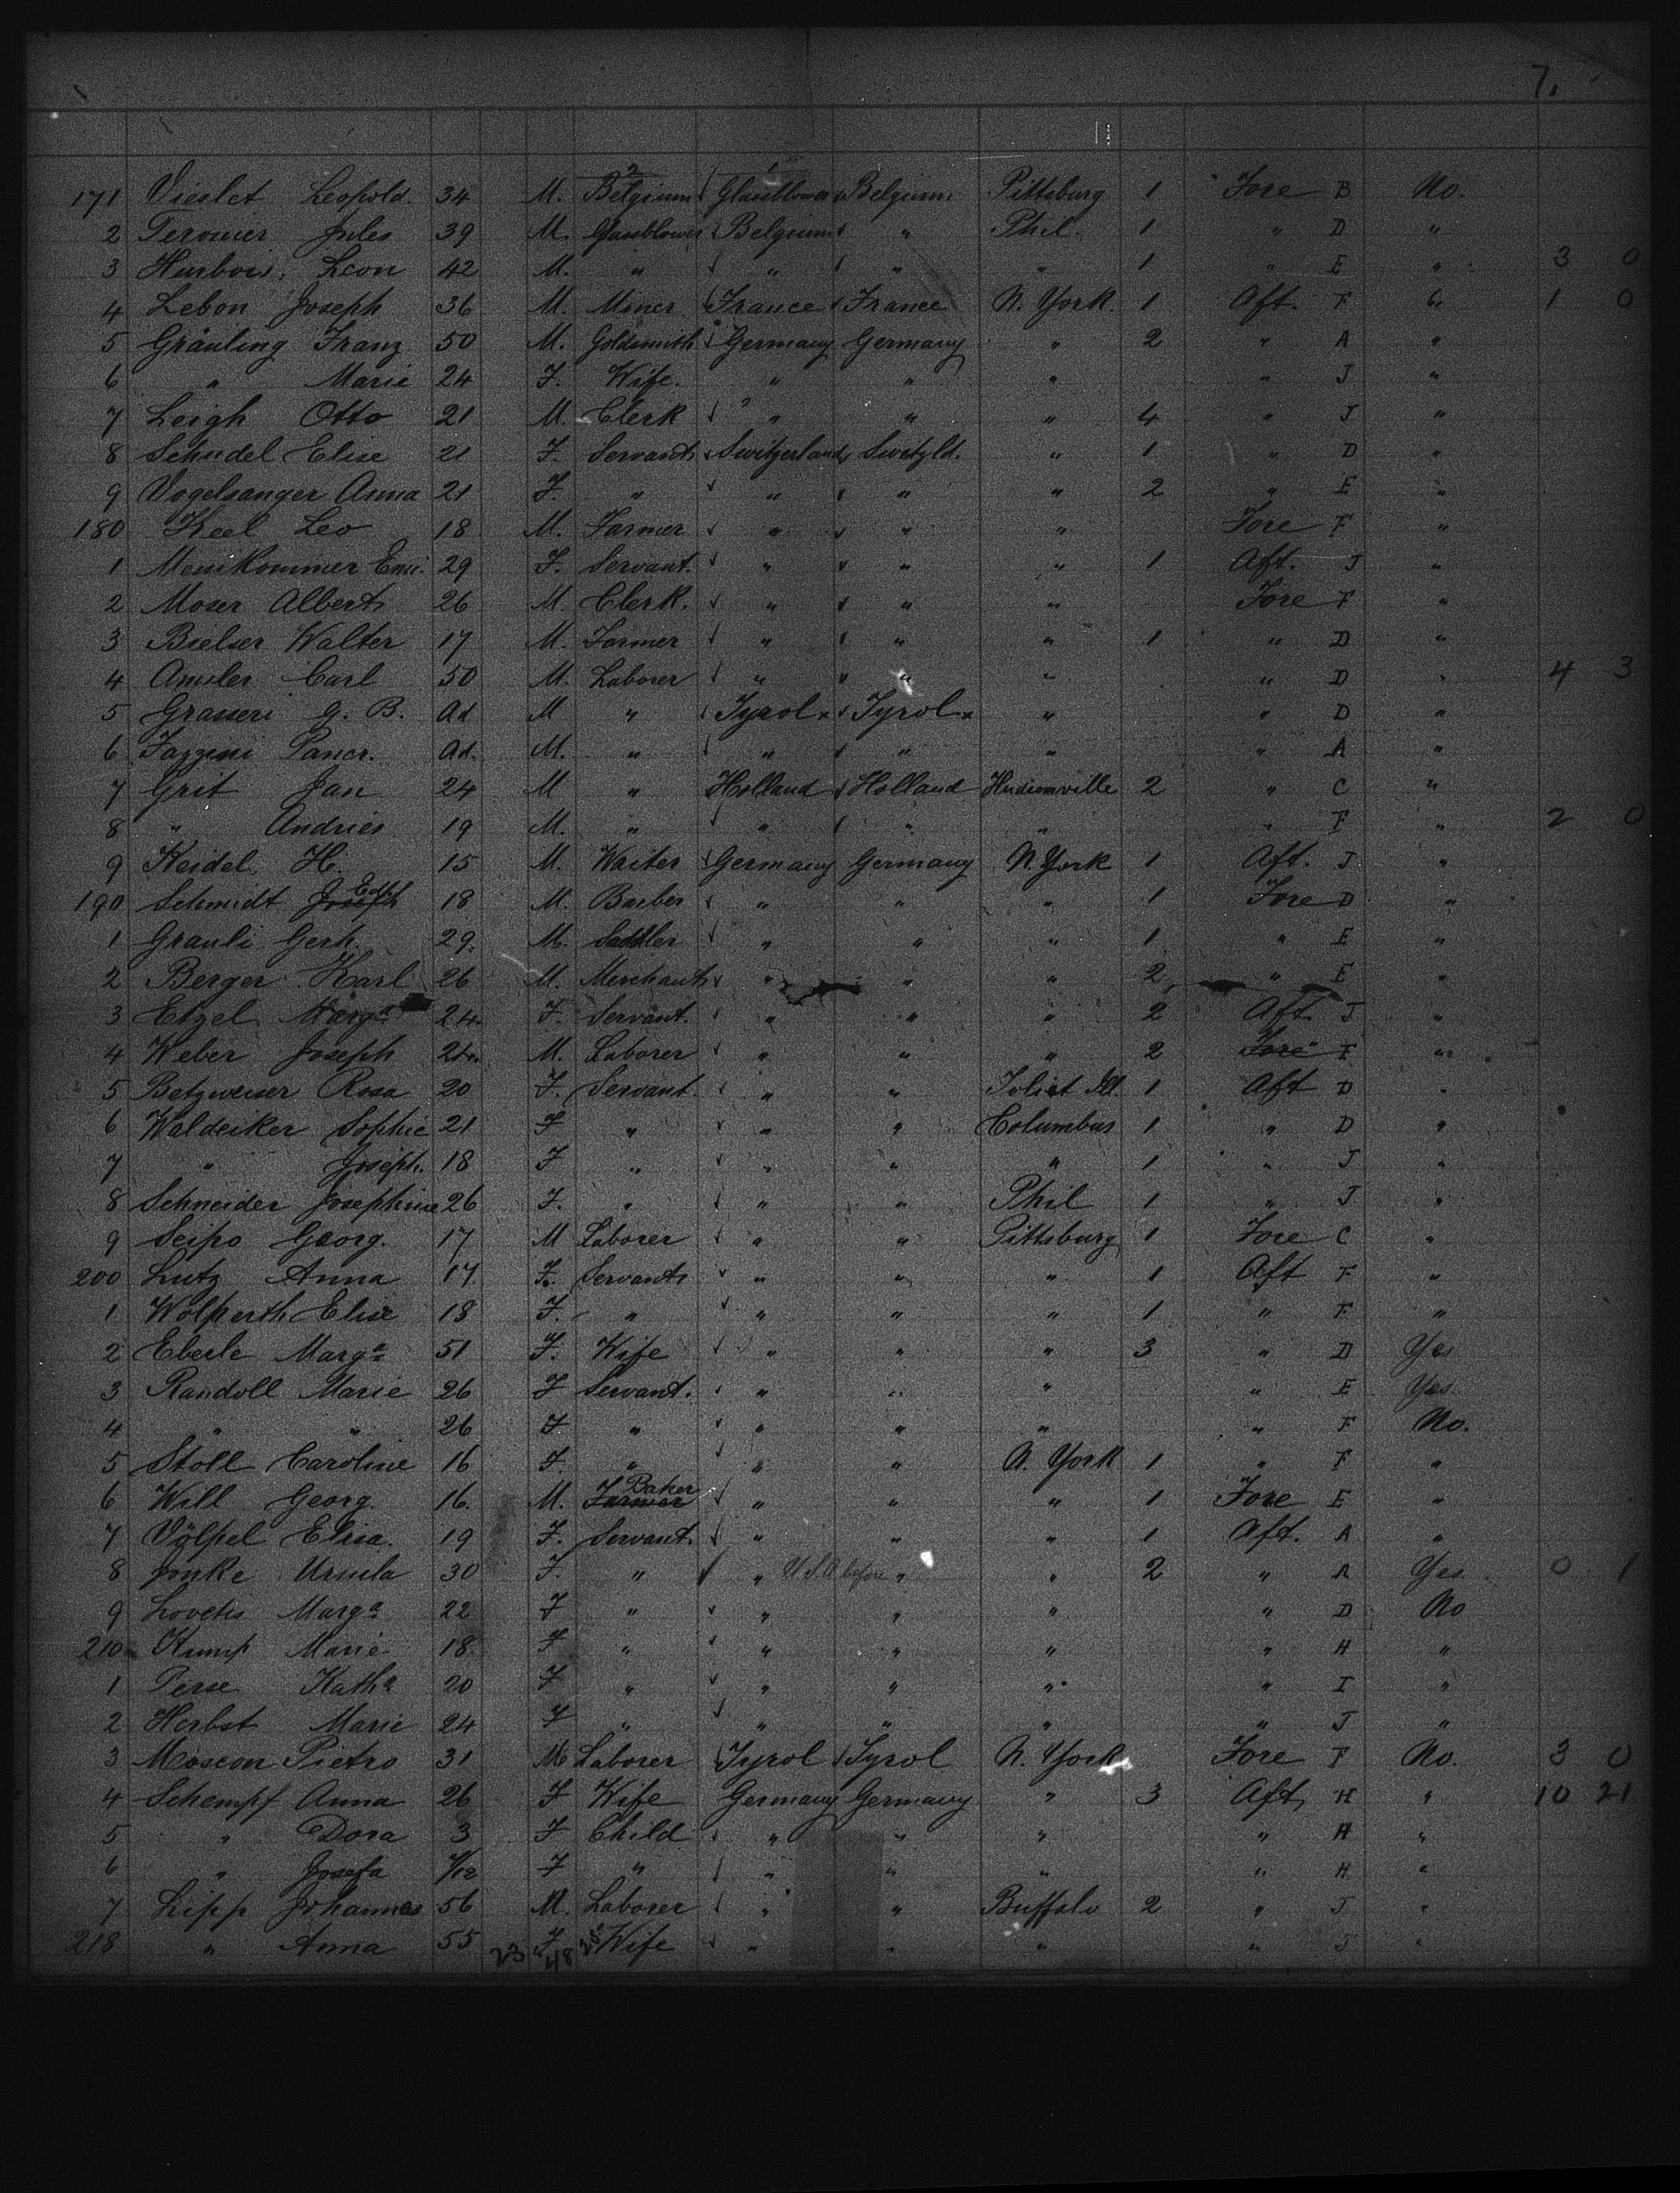 7.
171 Vieslet Leopold. 34 M. Belgium Glassblower Belgium Pittsburg 1 Fore B No.
2 Jules 39 M. Glassblower Belgium " Phil. 1 " D "
3 Leon 42 M. " " " " 1 " E " 3 0
4 Lebon Joseph 36 M. Miner France France N. York. 1 Aft. F " 1 0
5 Gräuling Franz 50 M. Goldsmith Germany Germany " 2 " A "
6 " Marie 24 F. Wife. " " " " J "
7 Leigh Otto 21 M. Clerk " " " 4 " J "
8 Schudel Elise 21 F. Servant Switzerland Switzld. " 1 " D "
9 Vogelsanger Anna 21 F. " " " " 2 " E "
180 Keel Leo 18 M. Farmer " " " Fore F "
1 29 F. Servant. " " " 1 Aft. J "
2 Moser Albert 26 M. Clerk. " " " Fore F "
3 Bielser Walter 17 M. Farmer " " " 1 " D "
4 Amsler Carl 50 M. Laborer " " " " D " 4 3
5 Grasseri G. B. Ad M " Tyrol x Tyrol x " " D "
6 Pancr. Ad. M. " " " " " A "
7 Grit Jan 24 M " Holland Holland 2 " C "
8 " Andries 19 M. " " " " " F " 2 0
9 Keidel H. 15 M. Waiter Germany Germany N. York 1 Aft. J "
190 Schmidt 18 M. Barber " " " 1 Fore D "
1 Grauli Gerh. 29. M. Saddler " " " 1 " E "
2 Berger Karl 26 M. Merchant " " " 2 " E "
3 Etzel Marga 24. F. Servant. " " " 2 Aft. J "
4 Weber Joseph 24. M. Laborer " " " 2 Fore F "
5 Betzweiser Rosa 20 F. Servant. " " Joliet Ill. 1 Aft D "
6 Waldeiker Sophie 21 F " " " Columbus 1 " D "
7 " Joseph. 18 F " " " " 1 " J "
8 Schneider Josephine 26 F. " " " Phil 1 " J "
9 Georg. 17 M Laborer " " Pittsburg 1 Fore C "
200 Lutz Anna 17. F. Servant " " " 1 Aft F "
1 Wolperth Elise 18 F. " " " " 1 " F "
2 Eberle Marga 51 F. Wife " " " 3 " D Yes
3 Randoll Marie 26 F Servant. " " " " E Yes
4 " " 26 F. " " " " " F No.
5 Stoll Caroline 16 F. " " " N. York 1 " F "
6 Will Georg. 16. M. Farmer Baker " " " 1 Fore E "
7 Völpel Elisa. 19 F. Servant. " " " 1 Aft. A "
8 Jonke Ursula 30 F. " " U.S.A before " " 2 " A Yes 0 1
9 Marga 22 F " " " " " D No
210 Kump Marie 18 F " " " " " H "
1 Perse Katha 20 F " " " " " I "
2 Herbst Marie 24 F " " " " " J "
3 Moscon Pietro 31 M Laborer Tyrol Tyrol N. York Fore F No. 3 0
4 Schempf Anna 26 F Wife Germany Germany " 3 Aft H " 10 21
5 " Dora 3 F Child " " " " H "
6 " Josefa F " " " " " H "
7 Lipp Johannes 56 M. Laborer " " Buffalo 2 " J "
218 " Anna 55 F Wife " " " " J "
23 48 25